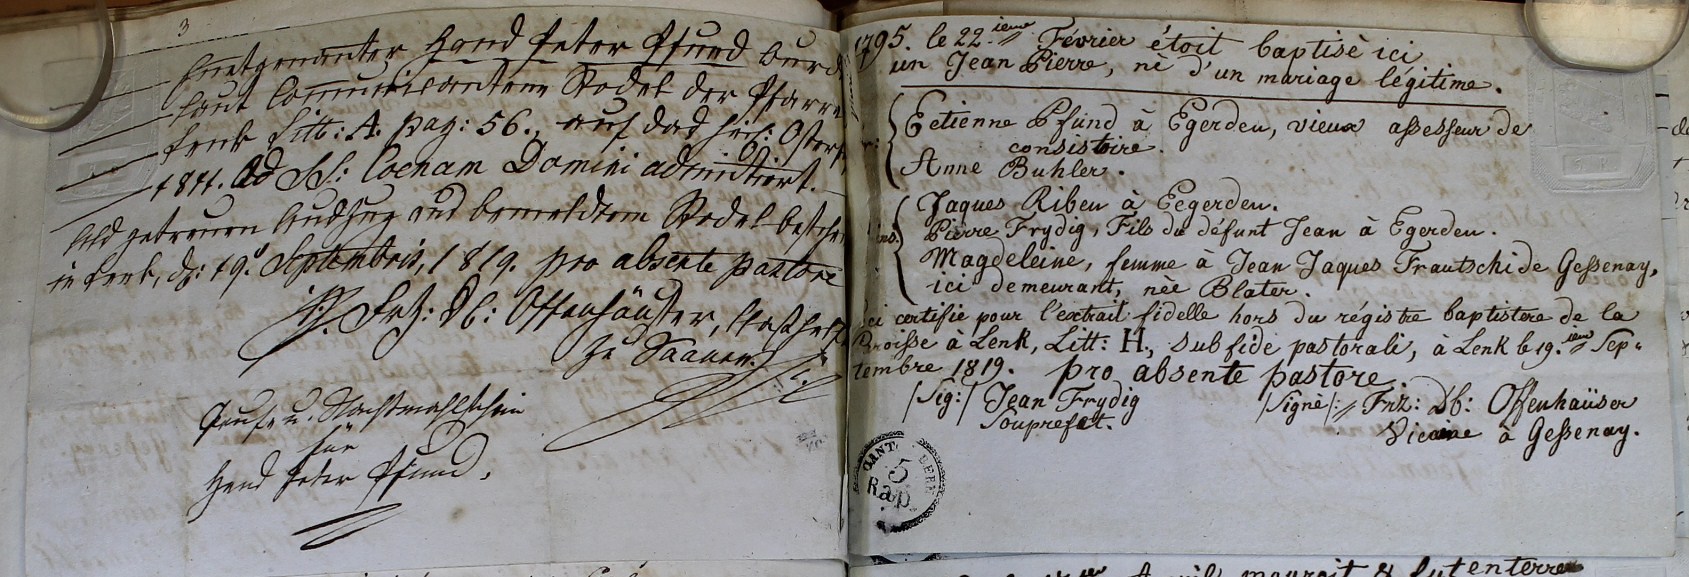 3
Hans Peter Pfund
laut Communicanten Rodel der Pfarre
Lenk Litt: A. pag: 56., auf das
1811. Ad SS: Coenam Domini admittiert.
Rodel
in Lenk, d: 19.t Septembris, 1819. pro absente pastore
Frz: Db: Offenhäuser,
zu Saanen.
Tauf u. Nachtmahlschein
für
Hans Peter Pfund.
1795. le 22.ieme Février étoit baptisè ici
un Jean Pierre, nè d'un mariage légitime.
Eetienne Pfund à Egerden, vieux assesseur de
consistoire.
Anne Buhler.
Jaques Riben à Eegerden.
Pierre Frydig, Fils du défunt Jean à Egerden.
Magdeleine, femme à Jean Jaques Frautschi de Gessenay,
ici demeurant, née Blater.
certifie pour l'extrait fidelle hors du régistre baptistere de la
Paroisse à Lenk, Litt: H., sub fide pastorali, à Lenk le 19.ieme Sep=
tembre 1819. pro absente pastore.
/Sig:/ Jean Frydig /Signè/: Frz: Db: Offenhaüser
Souprefet. Vicaire à Gessenay.
CANT. BERN
5
Rap.
Avril mouroit & fut enterré